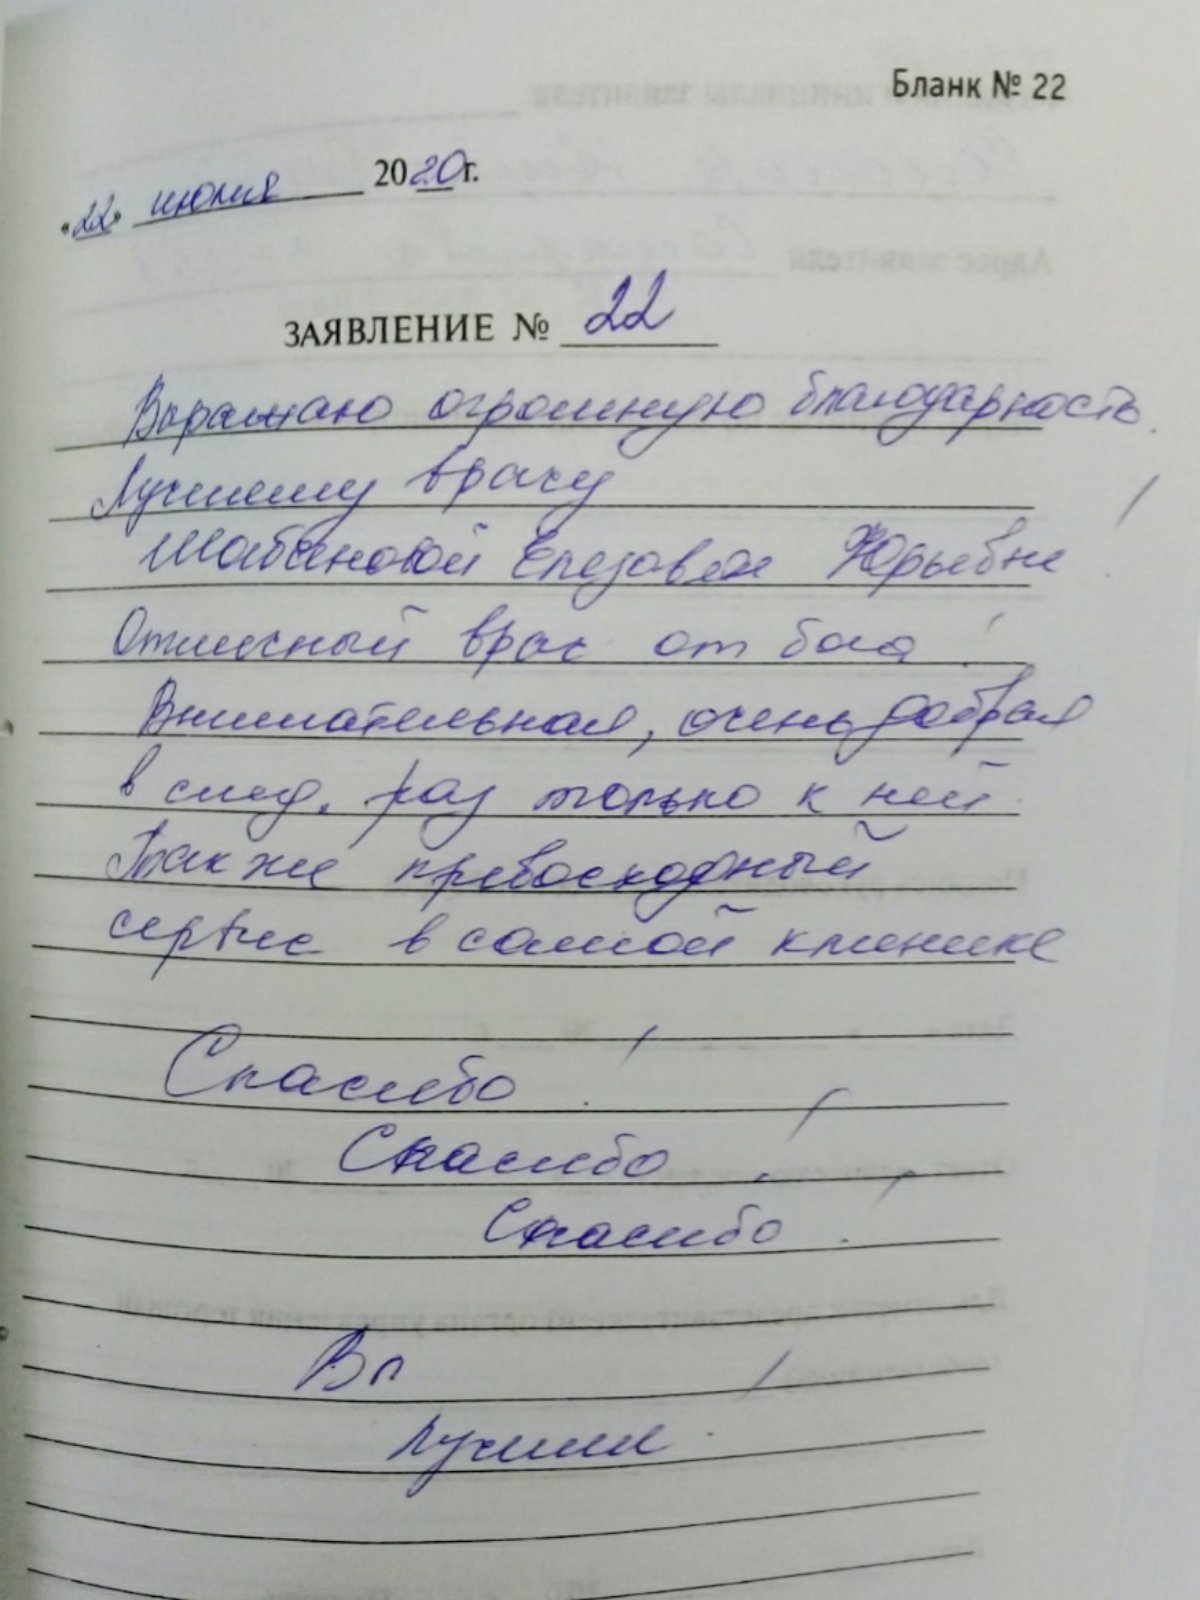 Бланк № 22
«22» июля 2020г.
ЗАЯВЛЕНИЕ № 22
Выражаю огромную благодарность
Лучшему врачу !
Шабановой Елизавете Юрьевне
Отличный врач от бога !
Внимательная, очень добрая
в след. раз только к ней
Также превосходный
сервис в самой клинике
Спасибо !
Спасибо !
Спасибо !
Вы
лучшие !